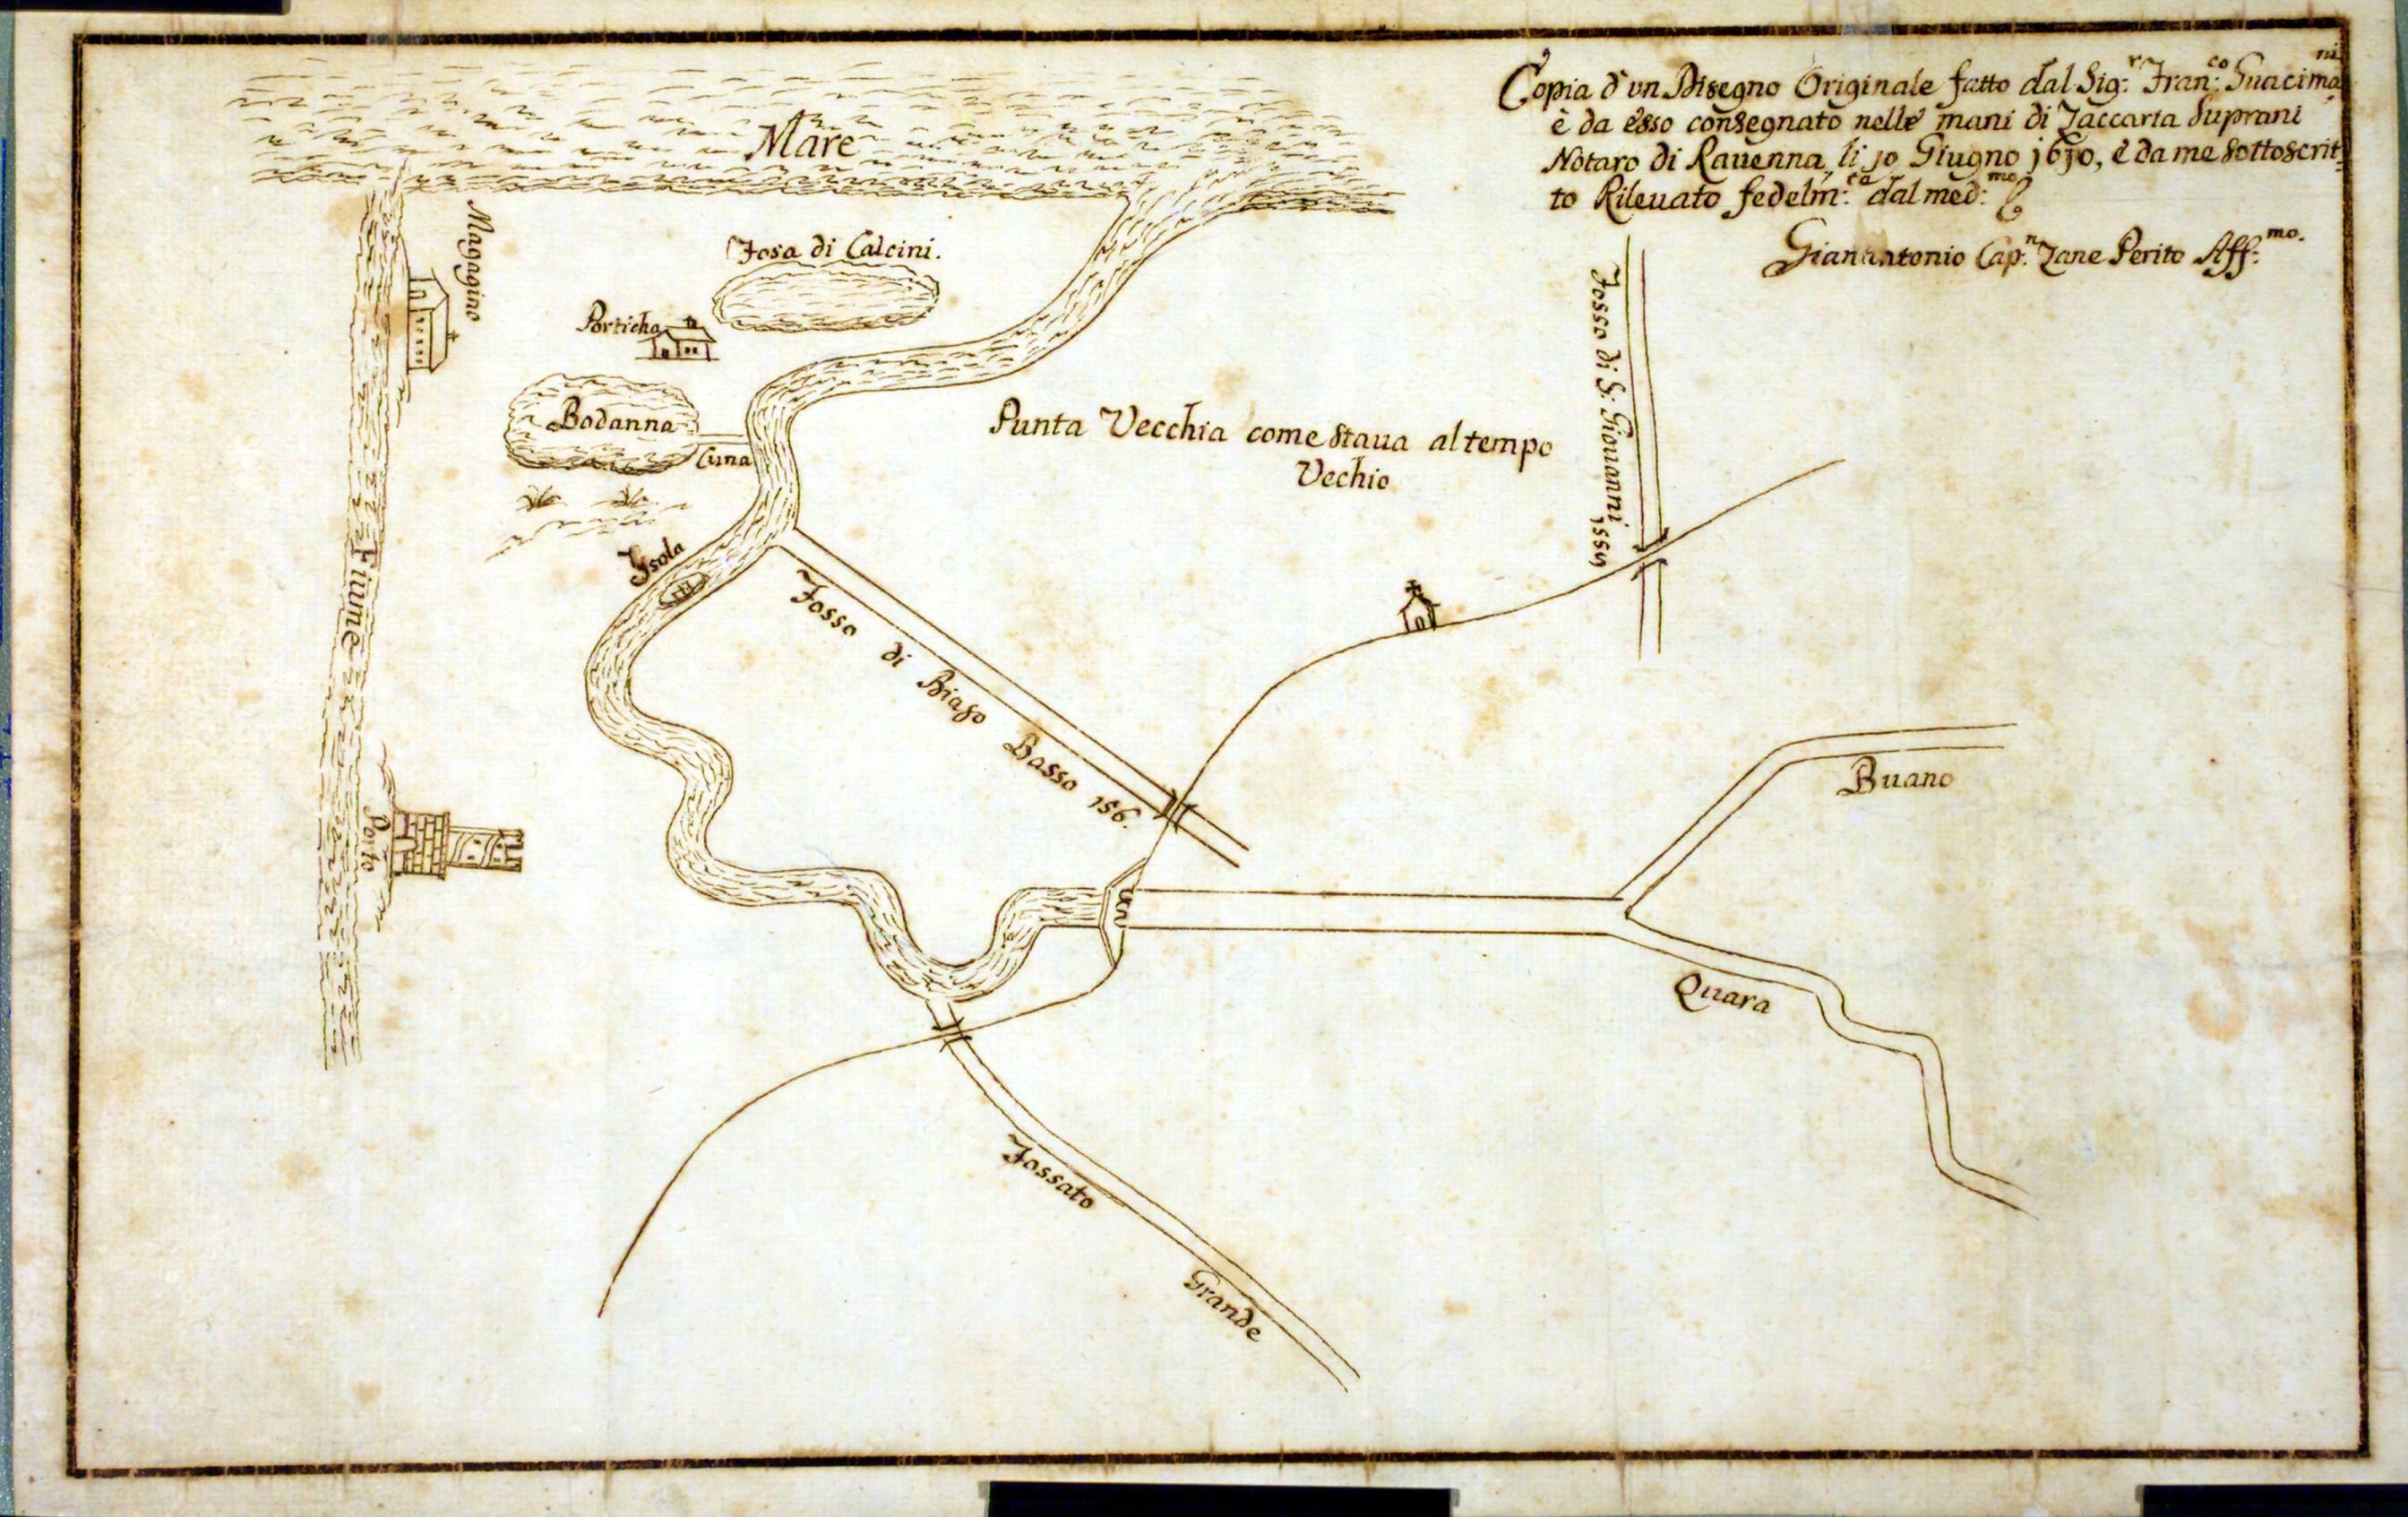 Copia d'un Disegno Originale fatto dal Sig:r Fran:co Guacima
ni
è da esso consegnato nelle mani di Zaccaria Suprani
Notaro di Rauenna, li 10 Giugno 1630, è da me sottoscrit:
to Rileuato fedelm:ta dal med:mo
Gianantonio Cap:n Zane Perito Aff:mo.
Mare
Magagino
Fosa di Calcini.
Porticha
Bodanna
Cuna
Isola
Fiume
Porto
Punta Vecchia come staua al tempo
Vechio
Fosso di S: Giouanni 1559
Fosso di Biaso Basso 156.
Buano
Quara
Fossato Grande